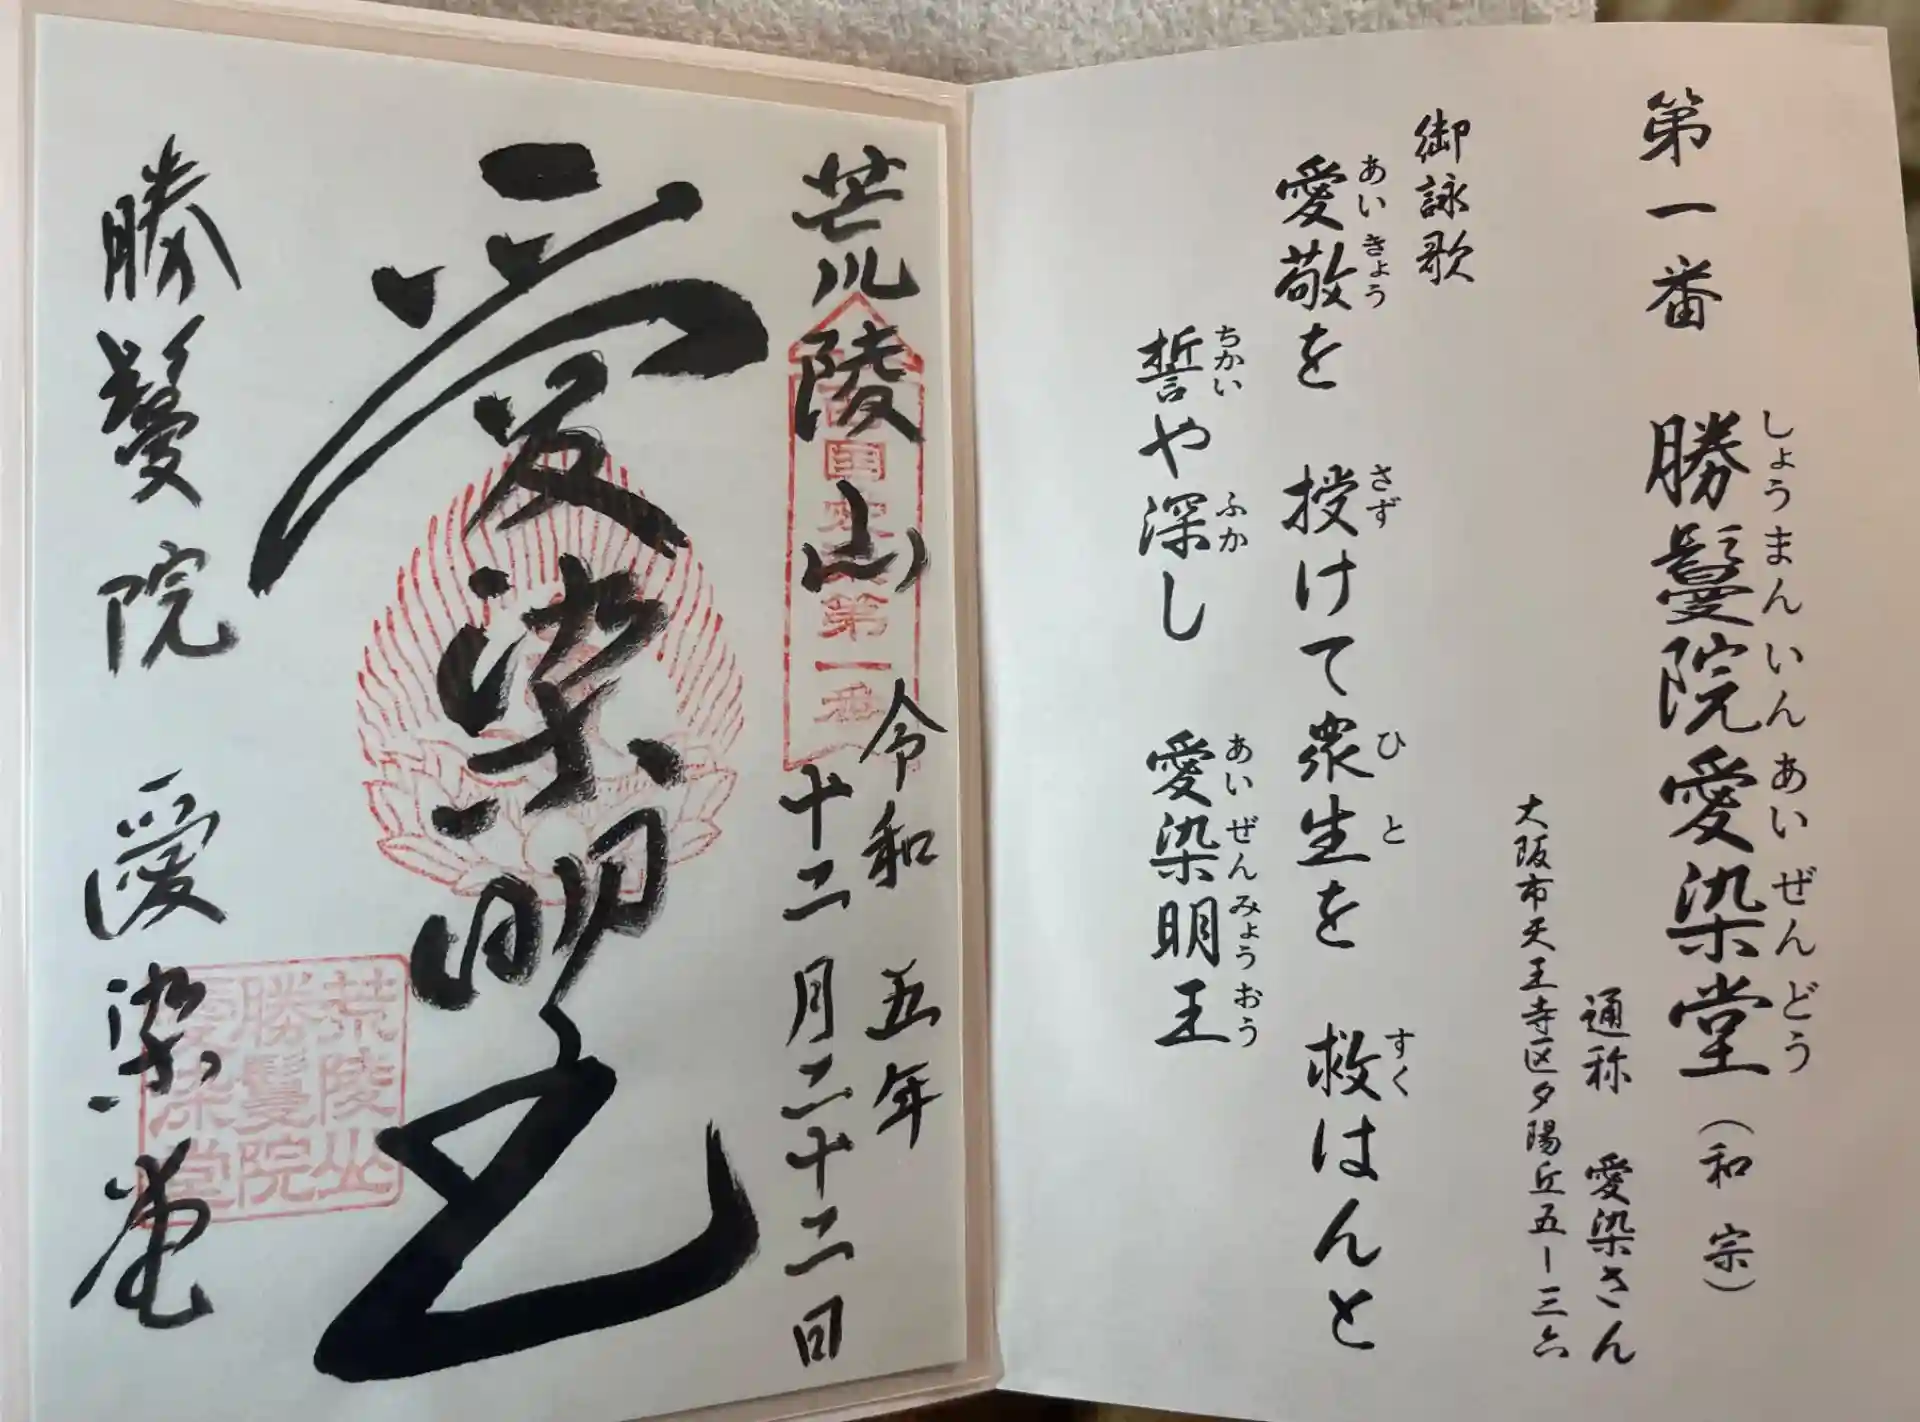 第一番 勝鬘院愛染堂(和宗)
しょうまんいんあいぜんどう
通称 愛染さん
大阪市天王寺区夕陽丘五ー三六
御詠歌
愛敬を 授けて衆生を 救はんと
あいきょう さず ひと すく
誓や深し 愛染明王
ちかい ふか あいぜんみょうおう
荒陵山
第一番
令和五年
十二月二十二日
愛染明王
勝鬘院 愛染堂
荒陵山
勝鬘院
愛染堂